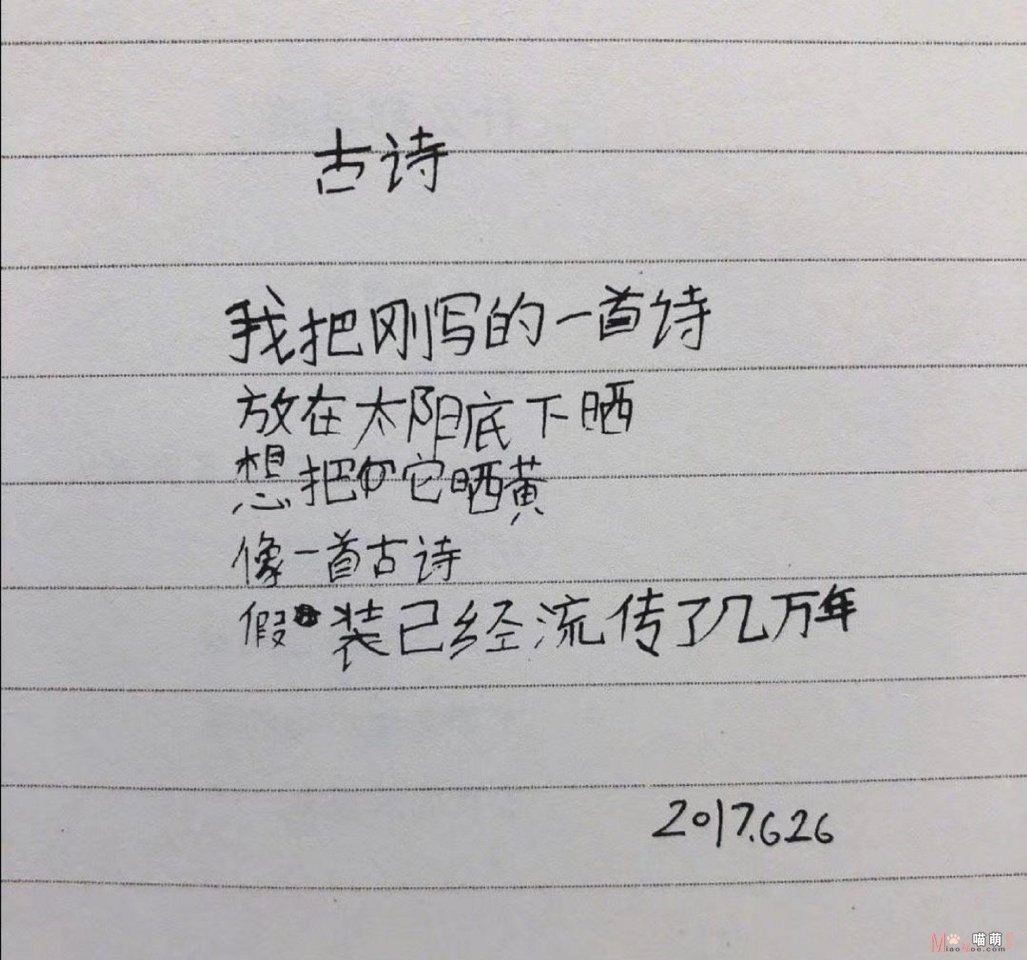 古诗
我把刚写的一首诗
放在太阳底下晒
想把它晒黄
像一首古诗
假装已经流传了几万年
2017.6.26
喵萌